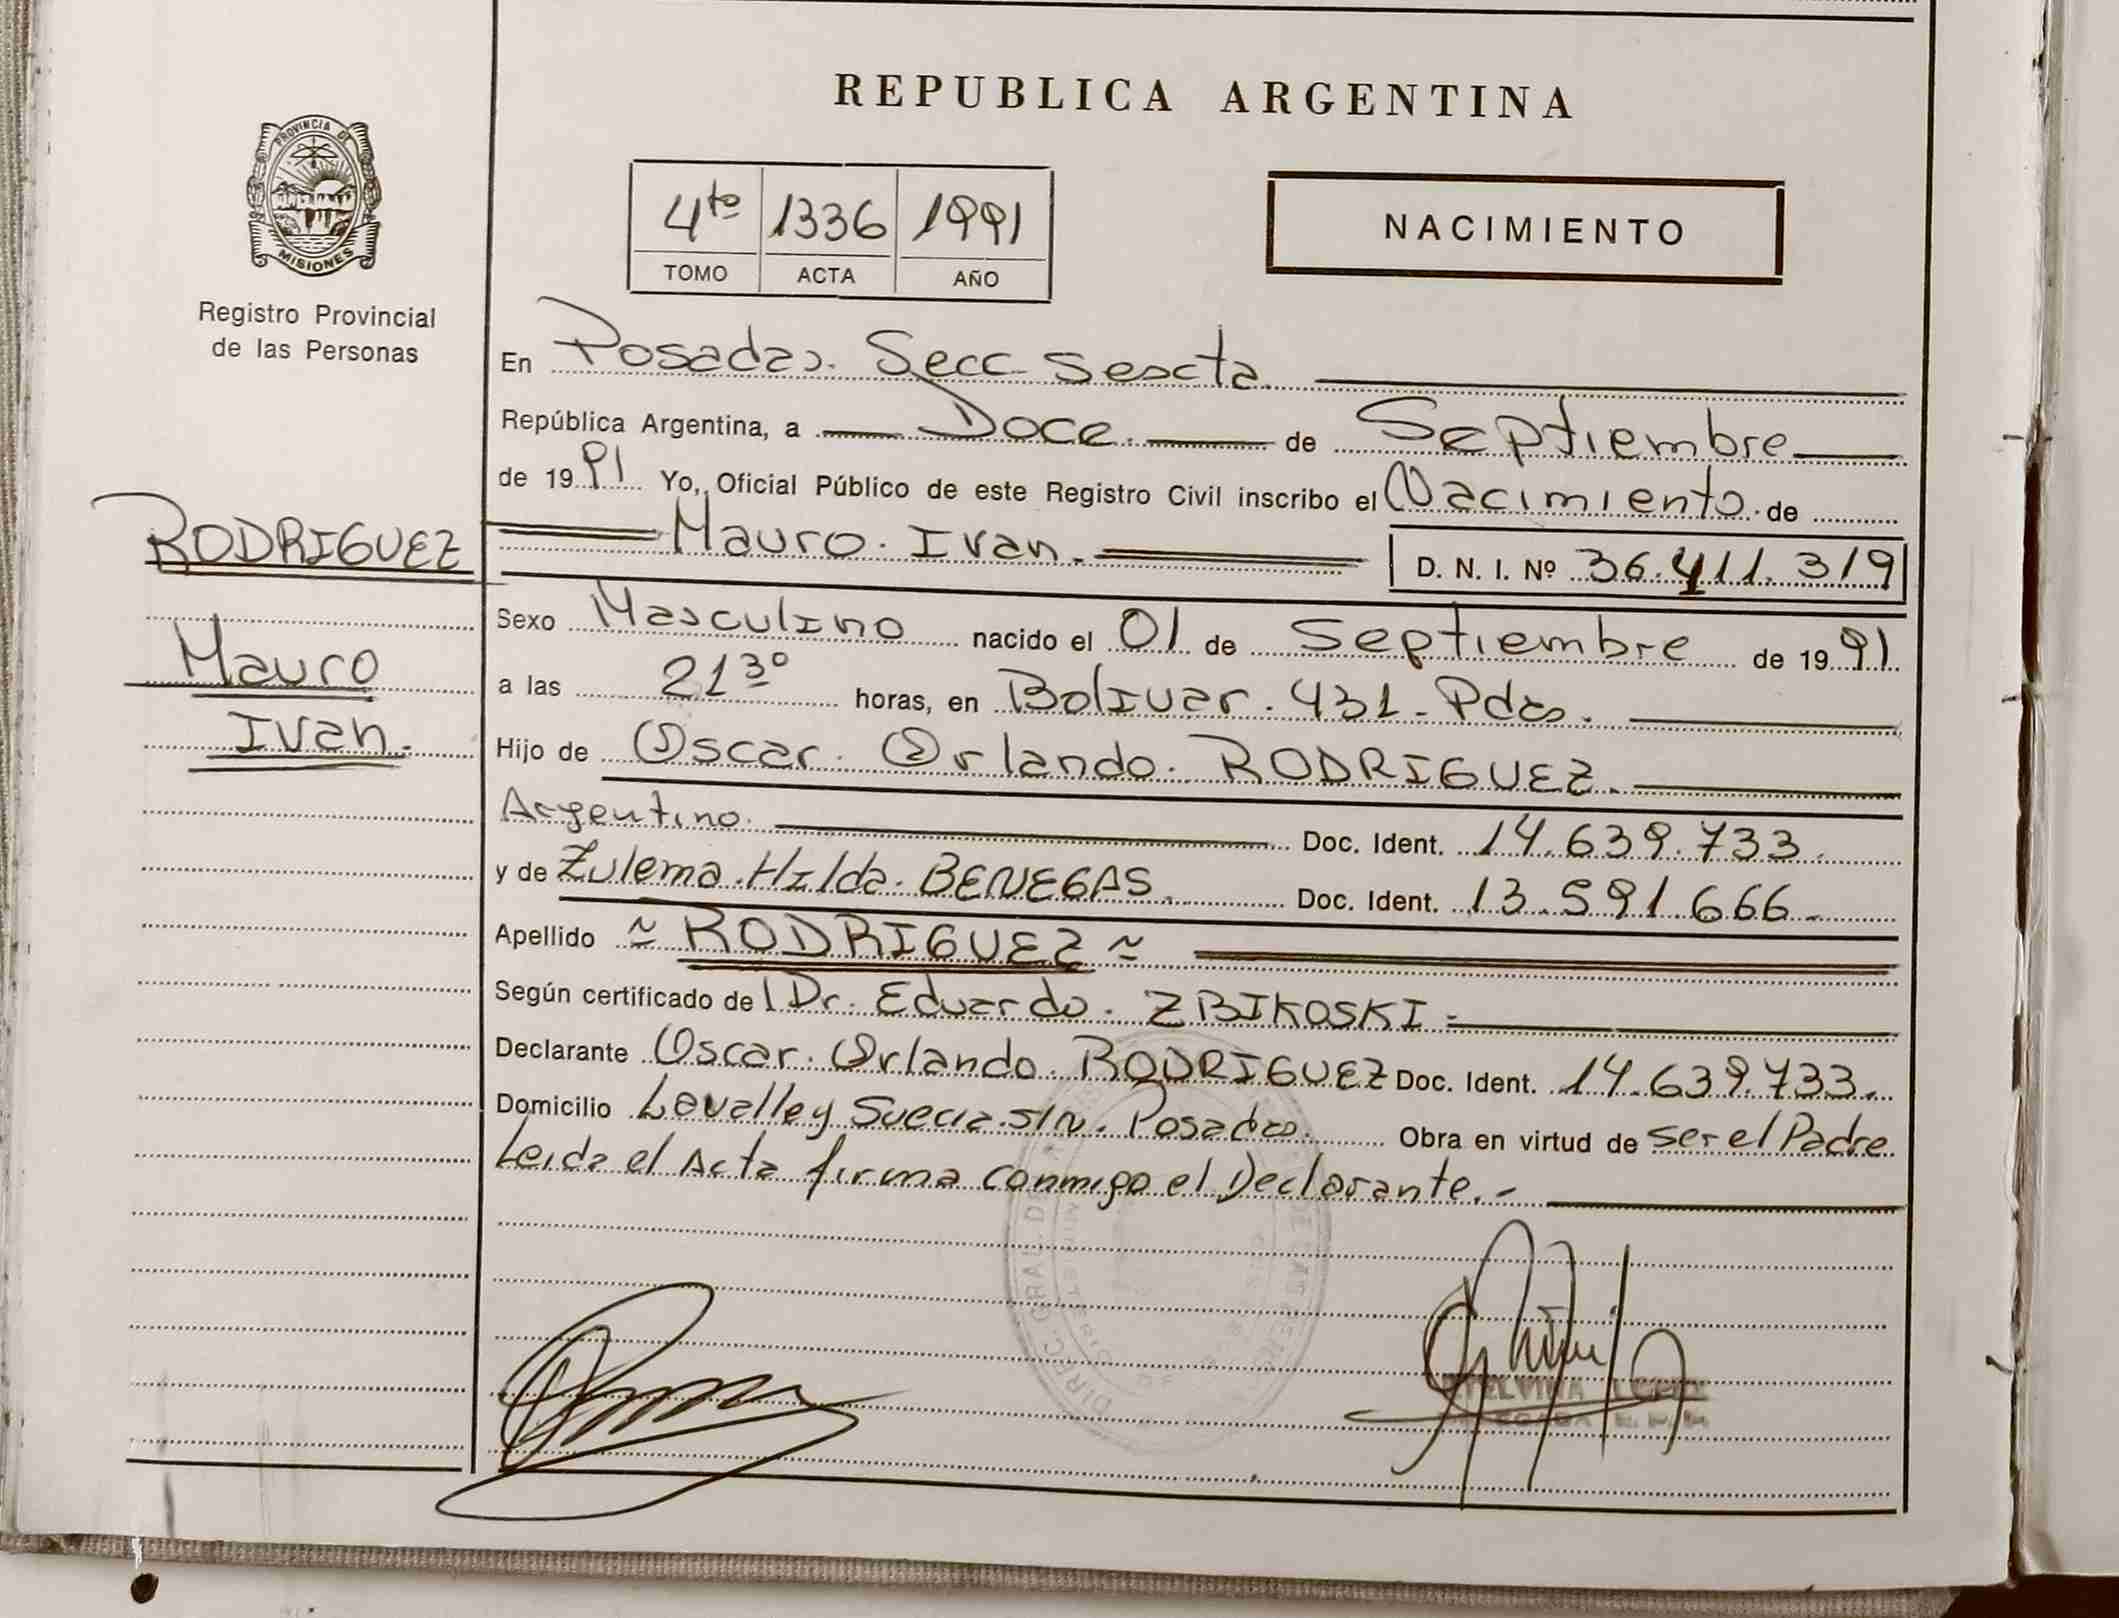 REPUBLICA ARGENTINA
PROVINCIA DE
MISIONES
Registro Provincial
de las Personas
4to 1336 1991
TOMO ACTA AÑO
NACIMIENTO
RODRIGUEZ
Mauro
Ivan.
En Posadas. Secc Sexta
República Argentina, a Doce. de Septiembre
de 1991 Yo, Oficial Público de este Registro Civil inscribo el Nacimiento de
Mauro. Ivan. D. N. I. Nº 36.411.319
Sexo Masculino nacido el 01 de Septiembre de 1991
a las 21 30 horas, en Bolivar. 431 - Pdas.
Hijo de Oscar. Orlando. RODRIGUEZ.
Argentino. Doc. Ident. 14.639.733.
y de Zulema. Hilda. BENEGAS. Doc. Ident. 13.591.666 -
Apellido ~ RODRIGUEZ ~
Según certificado de Dr. Eduardo. ZBIKOSKI -
Declarante Oscar. Orlando. RODRIGUEZ Doc. Ident. 14.639.733.
Domicilio Lavalle y Suecia. S/N. Posadas. Obra en virtud de ser el Padre
Leida el Acta firma conmigo el Declarante. -
DIREC. GRAL. DE
LOPEZ